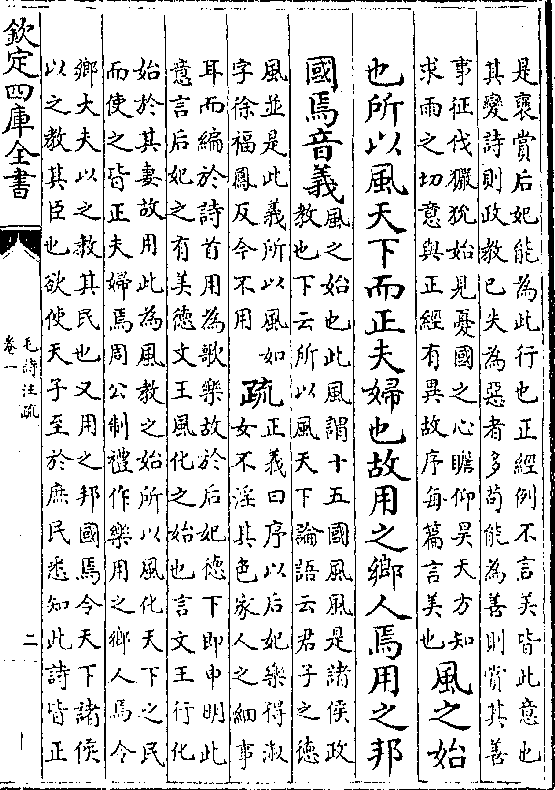 是褒賞后妃能為此行也正經例不言美皆此意也
其變詩則政教已失為惡者多苟能為善則賞其善
事征伐玁狁始見憂國之心瞻仰昊天方知
求雨之切意與正經有異故序每篇言美也
風之始
也所以風天下而正夫婦也故用之鄉人焉用之邦
國焉音義
風之始也此風謂十五國風風是諸侯政
教也下云所以風天下論語云君子之德
風並是此義所以風如
字徐福鳳反今不用
疏
正義曰序以后妃樂得淑
女不淫其色家人之細事
耳而編於詩首用為歌樂故於后妃德下即申明此
意言后妃之有美德文王風化之始也言文王行化
始於其妻故用此為風教之始所以風化天下之民
而使之皆正夫婦焉周公制禮作樂用之鄉人焉令
鄉大夫以之教其民也又用之邦國焉令天下諸侯
以之教其臣也欲使天子至於庶民悉知此詩皆正
欽定四庫全書
毛詩注疏
卷一
二